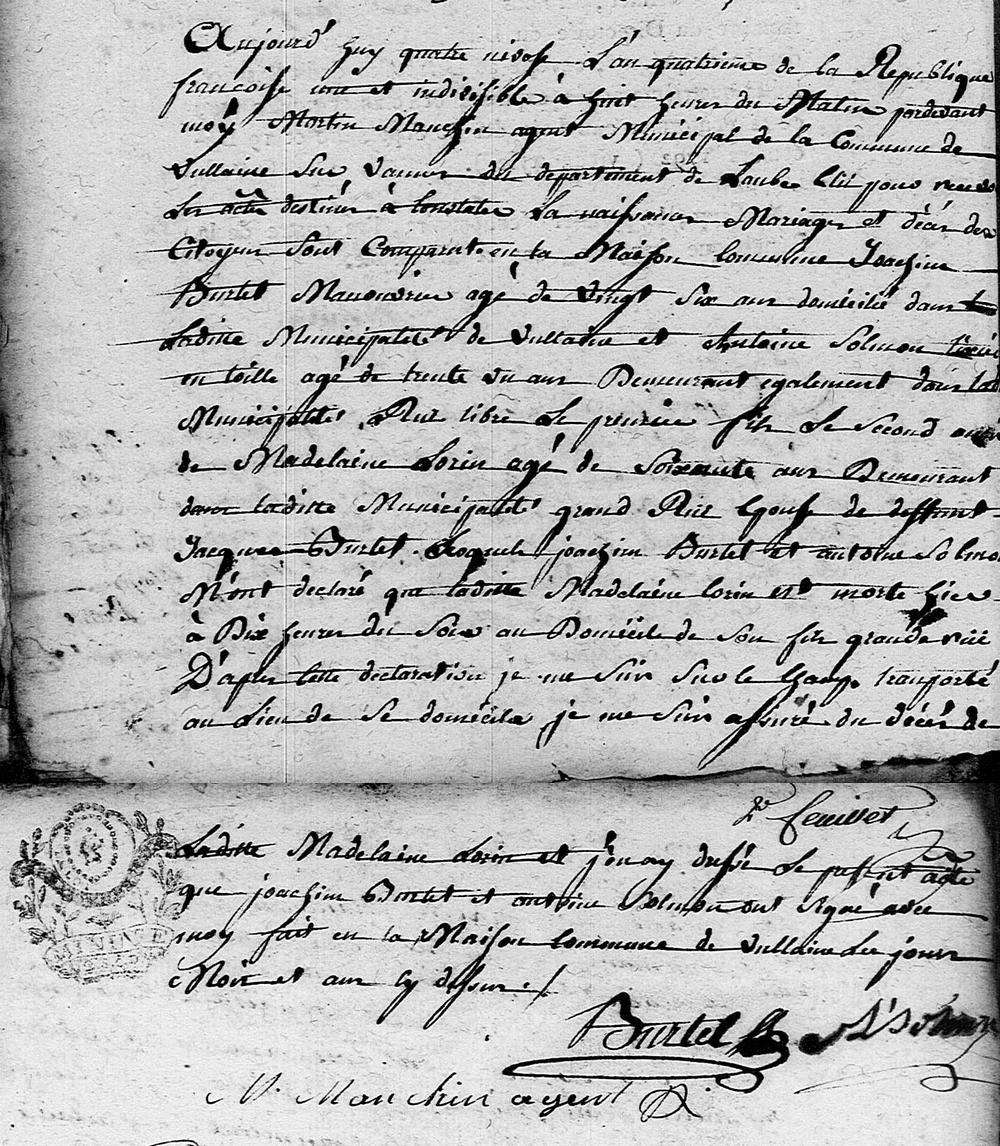 Aujourd'huy quatre nivose L'an quatrieme de la Republique
francoise une et indivisible à huit heures du Matin pardevant
moy Martin Manchin agent Municipal de la Commune de
Vullaine Sur Vannes du departement de Laube Elu pour recevoir
Les actes destinés à Constater La naissance Mariages et décès des
Citoyens Sont Comparut en la Maison Commune Joachim
Burtel Manouvrier agé de vingt Six ans domicilié dans
Laditte Municipalité de vullaine et Antoine Solmon
en toille agé de trente un ans Demeurant egalement dans la
Municipalité Rue libre Le premier fils Le Second
de Madelaine Lorin agé de Soixante ans Demeurant
dans laditte Municipalité grand Rue Epouse de deffunt
Jacques Burtel. Lesquels joachim Burtel et antoine Solmon
M'ont declaré que laditte Madelaine lorin est morte hier
à Dix heures du Soir au Domicile de Son fils grande rüe
D'apres Cette declaration je me Suis Sur le Champ tranporté
au Lieu de Se domicile je me Suis assuré du décès de
2e feuillet
Laditte Madelaine Lorin et j'en ay dressé Le present acte
que joachim Burtel et antoine Solmon ont Signé avec
moy fait en la Maison Commune de vullaine Les jour
Mois et an Cy dessus ./.
Burtel A Solmon
M. Manchin agent